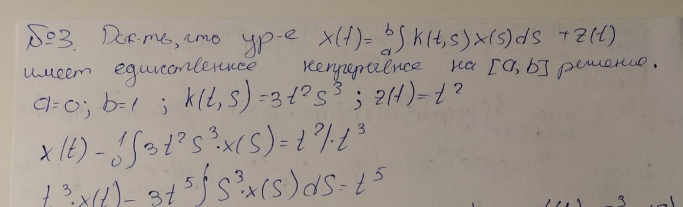 №3. Док-ть, что ур-е x(t) = ᵇₐ∫ k(t,s) x(s) ds + z(t)
имеет единственное непрерывное на [a, b] решение.
a=0; b=1; k(t,s) = 3t²s³; z(t) = t²
x(t) - ¹₀∫ 3t²s³·x(s) = t² /·t³
t³·x(t) - 3t⁵ ∫ s³·x(s) ds = t⁵